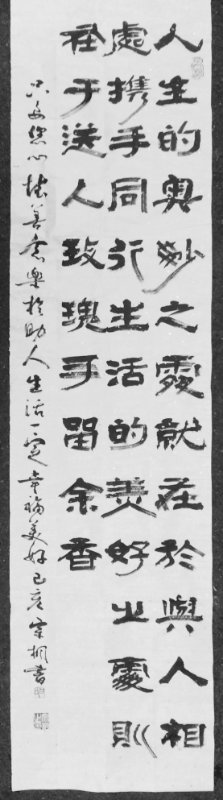 人生的奥妙之處就在於與人相
處携手同行生活的美好之處則
在于送人玫瑰手留余香
只要您心怀善意樂於助人生活一定幸福美好己亥 書